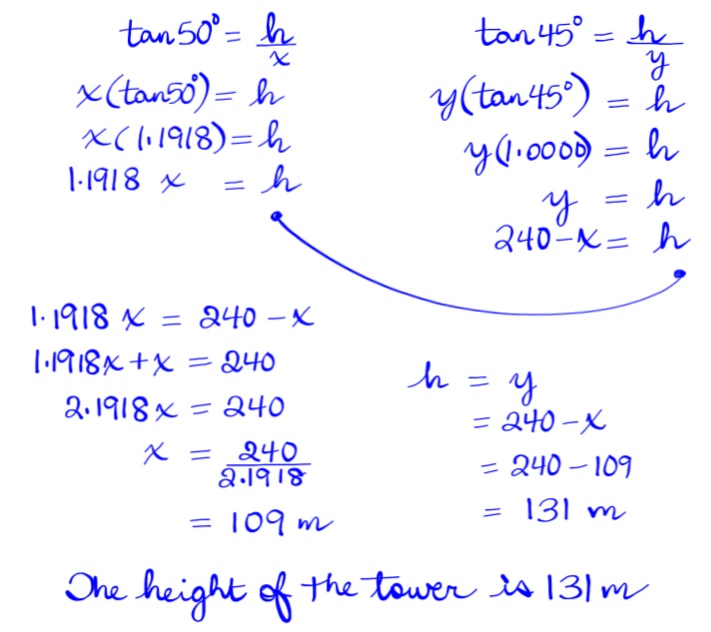 tan50° = h/x
x(tan50°) = h
x(1.1918) = h
1.1918 x = h
tan45° = h/y
y(tan45°) = h
y(1.0000) = h
y = h
240-x = h
1.1918 x = 240 - x
1.1918x + x = 240
2.1918x = 240
x = 240/2.1918
= 109 m
h = y
= 240 - x
= 240 - 109
= 131 m
The height of the tower is 131m